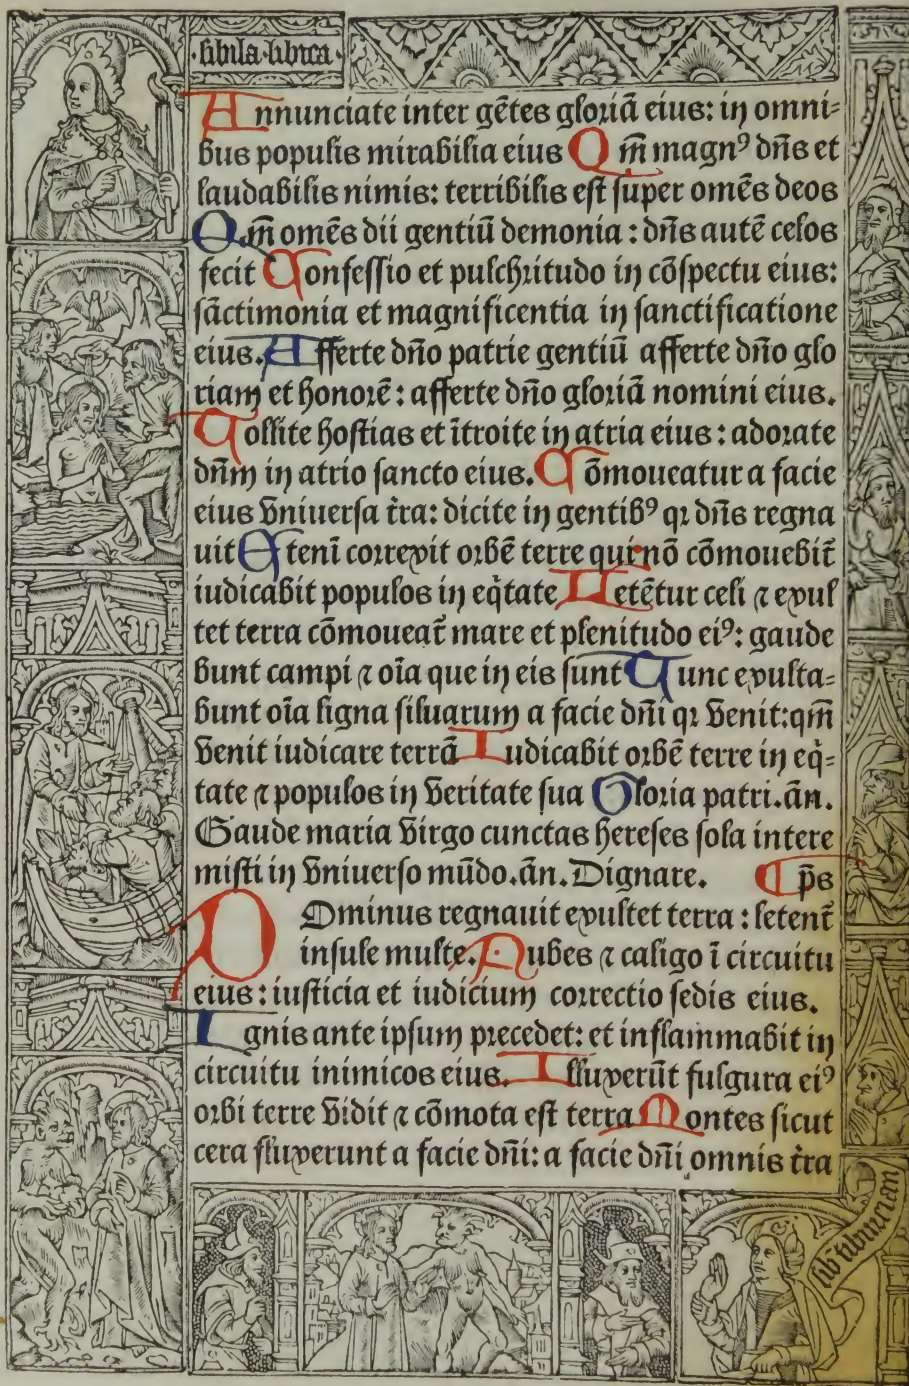 ·sibila·libica·
Annunciate inter gētes gloriā eius: in omni-
bus populis mirabilia eius Qm̄ magnꝰ dn̄s et
laudabilis nimis: terribilis est super omēs deos
Qm̄ omēs dii gentiū demonia: dn̄s autē celos
fecit Confessio et pulchritudo in cōspectu eius:
sāctimonia et magnificentia in sanctificatione
eius. Afferte dn̄o patrie gentiū afferte dn̄o glo
riam et honorē: afferte dn̄o gloriā nomini eius.
Tollite hostias et ītroite in atria eius: adorate
dn̄m in atrio sancto eius. Cōmoueatur a facie
eius vniuersa t̄ra: dicite in gentibꝰ qꝛ dn̄s regna
uit Etenī correxit orbē terre qui nō cōmouebit̄
iudicabit populos in eq̄tate Letētur celi ⁊ exul
tet terra cōmoueat̄ mare et plenitudo eiꝰ: gaude
bunt campi ⁊ oīa que in eis sunt Tunc exulta-
bunt oīa ligna siluarum a facie dn̄i qꝛ venit: qm̄
venit iudicare terrā Iudicabit orbē terre in eq̄-
tate ⁊ populos in veritate sua Gloria patri. ān.
Gaude maria virgo cunctas hereses sola intere
misti in vniuerso mūdo. ān. Dignare. ¶ p̄s
DOminus regnauit exultet terra: letent̄
insule multe. Nubes ⁊ caligo ī circuitu
eius: iusticia et iudicium correctio sedis eius.
Ignis ante ipsum precedet: et inflammabit in
circuitu inimicos eius. Illuxerūt fulgura eiꝰ
orbi terre vidit ⁊ cōmota est terra Montes sicut
cera fluxerunt a facie dn̄i: a facie dn̄i omnis t̄ra
sib tiburcian